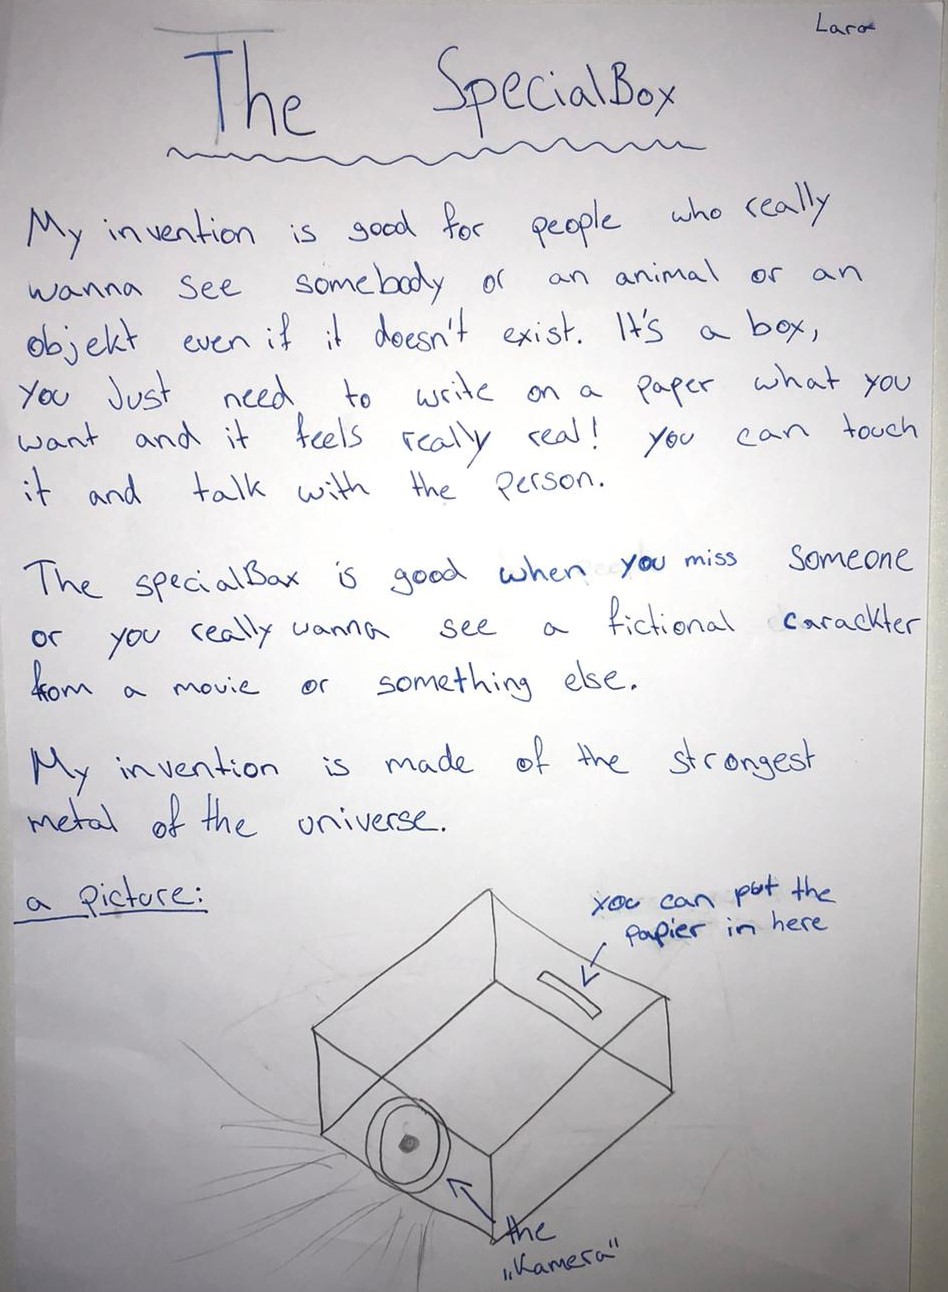 Lara
The SpecialBox
My invention is good for people who really
wanna see somebody or an animal or an
objekt even if it doesn't exist. It's a box,
you Just need to write on a paper what you
want and it feels really real! you can touch
it and talk with the person.
The specialBox is good when you miss someone
or you really wanna see a fictional carackter
from a movie or something else.
My invention is made of the strongest
metal of the universe.
a picture:
you can put the
papier in here
the
„Kamera"